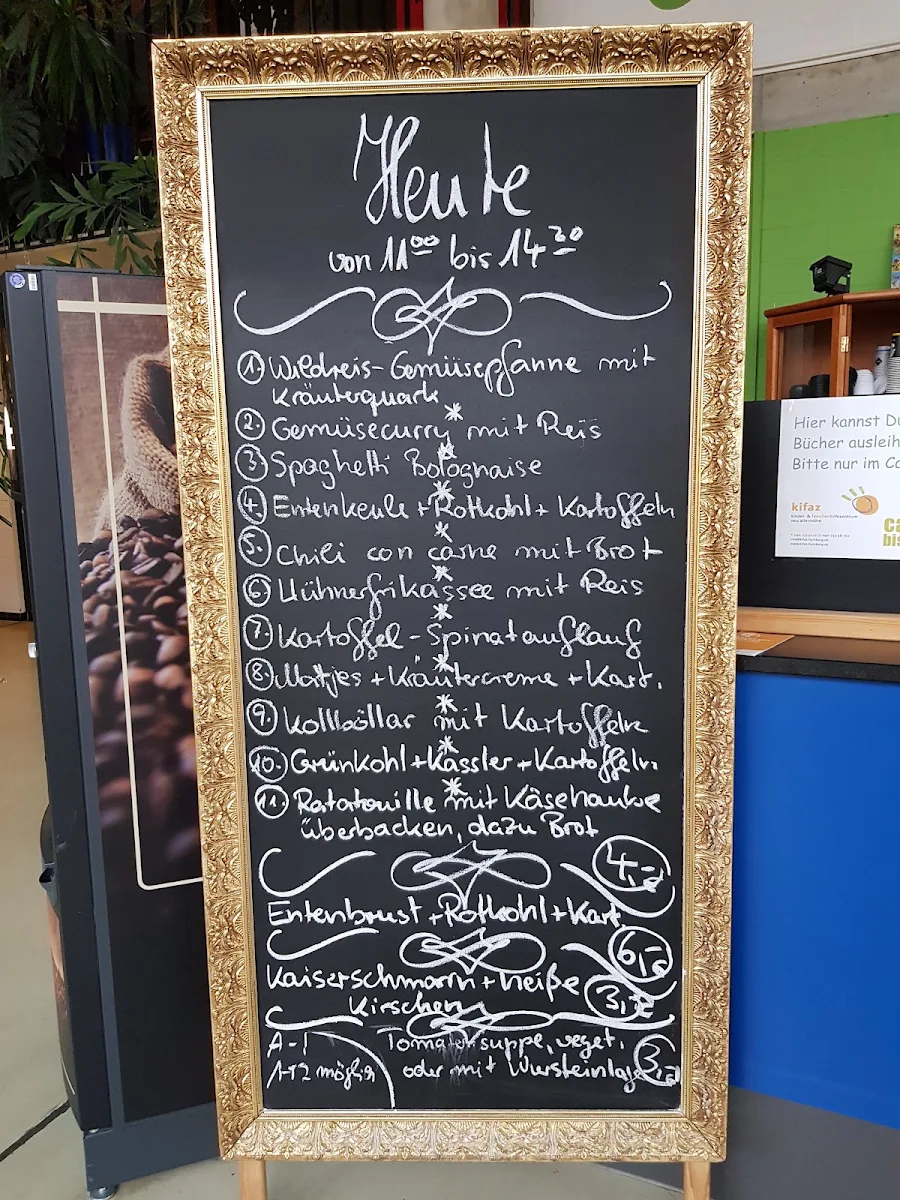 Heute
von 11⁰⁰ bis 14³⁰
1. Wildreis-Gemüsepfanne mit
Kräuterquark
2. Gemüsecurry mit Reis
3. Spaghetti Bolognaise
4. Entenkeule + Rotkohl + Kartoffeln
5. Chili con carne mit Brot
6. Hühnerfrikassee mit Reis
7. Kartoffel-Spinatauflauf
8. Matjes + Kräutercreme + Kart.
9. Kollböllar mit Kartoffeln
10. Grünkohl + Kassler + Kartoffeln
11. Ratatouille mit Käsehaube
überbacken, dazu Brot
4,-
Entenbrust + Rotkohl + Kart
6,-
Kaiserschmarrn + heiße
Kirschen
3,-
Tomatensuppe, veget.
oder mit Wursteinlage
3,-
möglich
Hier kannst Du
Bücher ausleih
Bitte nur im Ca
kifaz
ca
bis